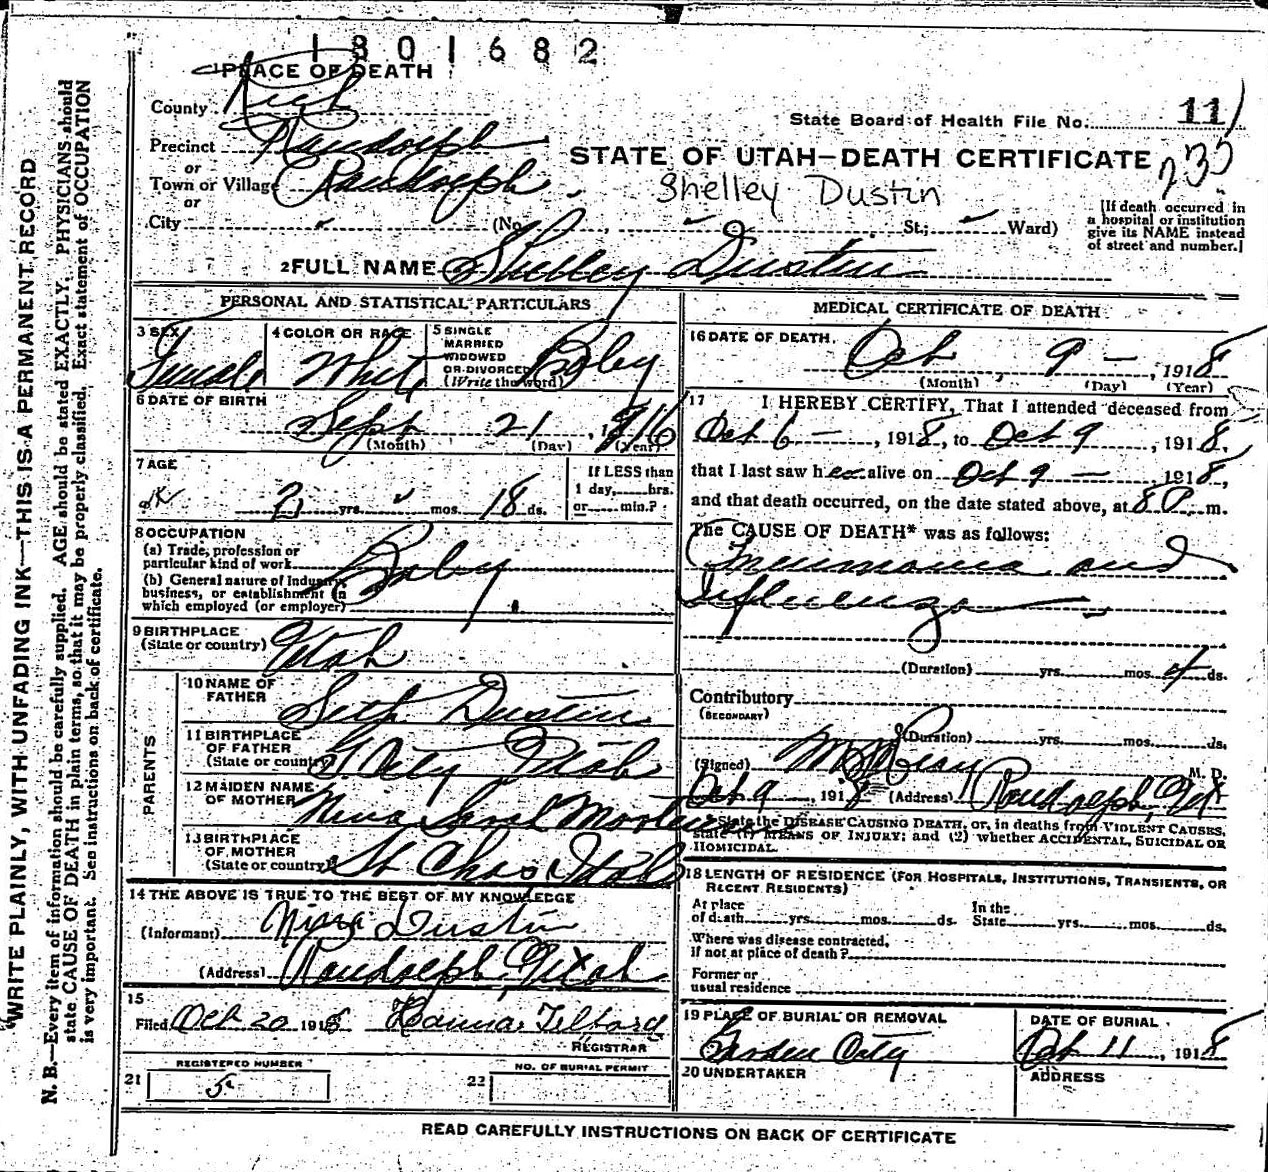 1801682
1 PLACE OF DEATH
County Rich
State Board of Health File No. 11
Precinct Randolph
or
STATE OF UTAH—DEATH CERTIFICATE
Town or Village Randolph
Shelley Dustin
or
City (No. , St.; Ward)
[If death occurred in a hospital or institution give its NAME instead of street and number.]
2 FULL NAME Shelley Dustin
PERSONAL AND STATISTICAL PARTICULARS
3 SEX Female
4 COLOR OR RACE White
5 SINGLE MARRIED WIDOWED OR DIVORCED (Write the word) Baby
6 DATE OF BIRTH
Sept 21, 1916
(Month) (Day) (Year)
7 AGE
2 yrs. mos. 18 ds.
If LESS than 1 day, hrs. or min.?
8 OCCUPATION
(a) Trade, profession or particular kind of work Baby
(b) General nature of Industry, business, or establishment in which employed (or employer)
9 BIRTHPLACE
(State or country) Utah
PARENTS
10 NAME OF FATHER Seth Dustin
11 BIRTHPLACE OF FATHER (State or country) G. City Utah
12 MAIDEN NAME OF MOTHER Nina Sarah
13 BIRTHPLACE OF MOTHER (State or country) St Chas Idaho
14 THE ABOVE IS TRUE TO THE BEST OF MY KNOWLEDGE
(Informant) Dustin
(Address) Randolph, Utah
15
Filed Oct 20 1918 Hanna
REGISTRAR
REGISTERED NUMBER
21 5
NO. OF BURIAL PERMIT
22
MEDICAL CERTIFICATE OF DEATH
16 DATE OF DEATH
Oct 9 —, 1918
(Month) (Day) (Year)
17 I HEREBY CERTIFY, That I attended deceased from
Oct 6 —, 1918, to Oct 9, 1918,
that I last saw her alive on Oct 9 — 1918,
and that death occurred, on the date stated above, at 8 P. m.
The CAUSE OF DEATH* was as follows:
Pneumonia and
Influenza
(Duration) yrs. mos. ds.
Contributory
(SECONDARY)
(Duration) yrs. mos. ds.
(Signed) M. D.
Oct 9, 1918 (Address) Randolph, Utah
*State the DISEASE CAUSING DEATH, or, in deaths from VIOLENT CAUSES,
state (1) MEANS OF INJURY; and (2) whether ACCIDENTAL, SUICIDAL OR
HOMICIDAL.
18 LENGTH OF RESIDENCE (FOR HOSPITALS, INSTITUTIONS, TRANSIENTS, OR
RECENT RESIDENTS)
At place of death yrs. mos. ds. In the State yrs. mos. ds.
Where was disease contracted,
if not at place of death?
Former or
usual residence
19 PLACE OF BURIAL OR REMOVAL
Garden City
DATE OF BURIAL
Oct 11, 1918
20 UNDERTAKER
ADDRESS
READ CAREFULLY INSTRUCTIONS ON BACK OF CERTIFICATE
WRITE PLAINLY, WITH UNFADING INK—THIS IS A PERMANENT RECORD
N. B.—Every item of information should be carefully supplied. AGE should be stated EXACTLY. PHYSICIANS should
state CAUSE OF DEATH in plain terms, so that it may be properly classified. Exact statement of OCCUPATION
is very important. See instructions on back of certificate.